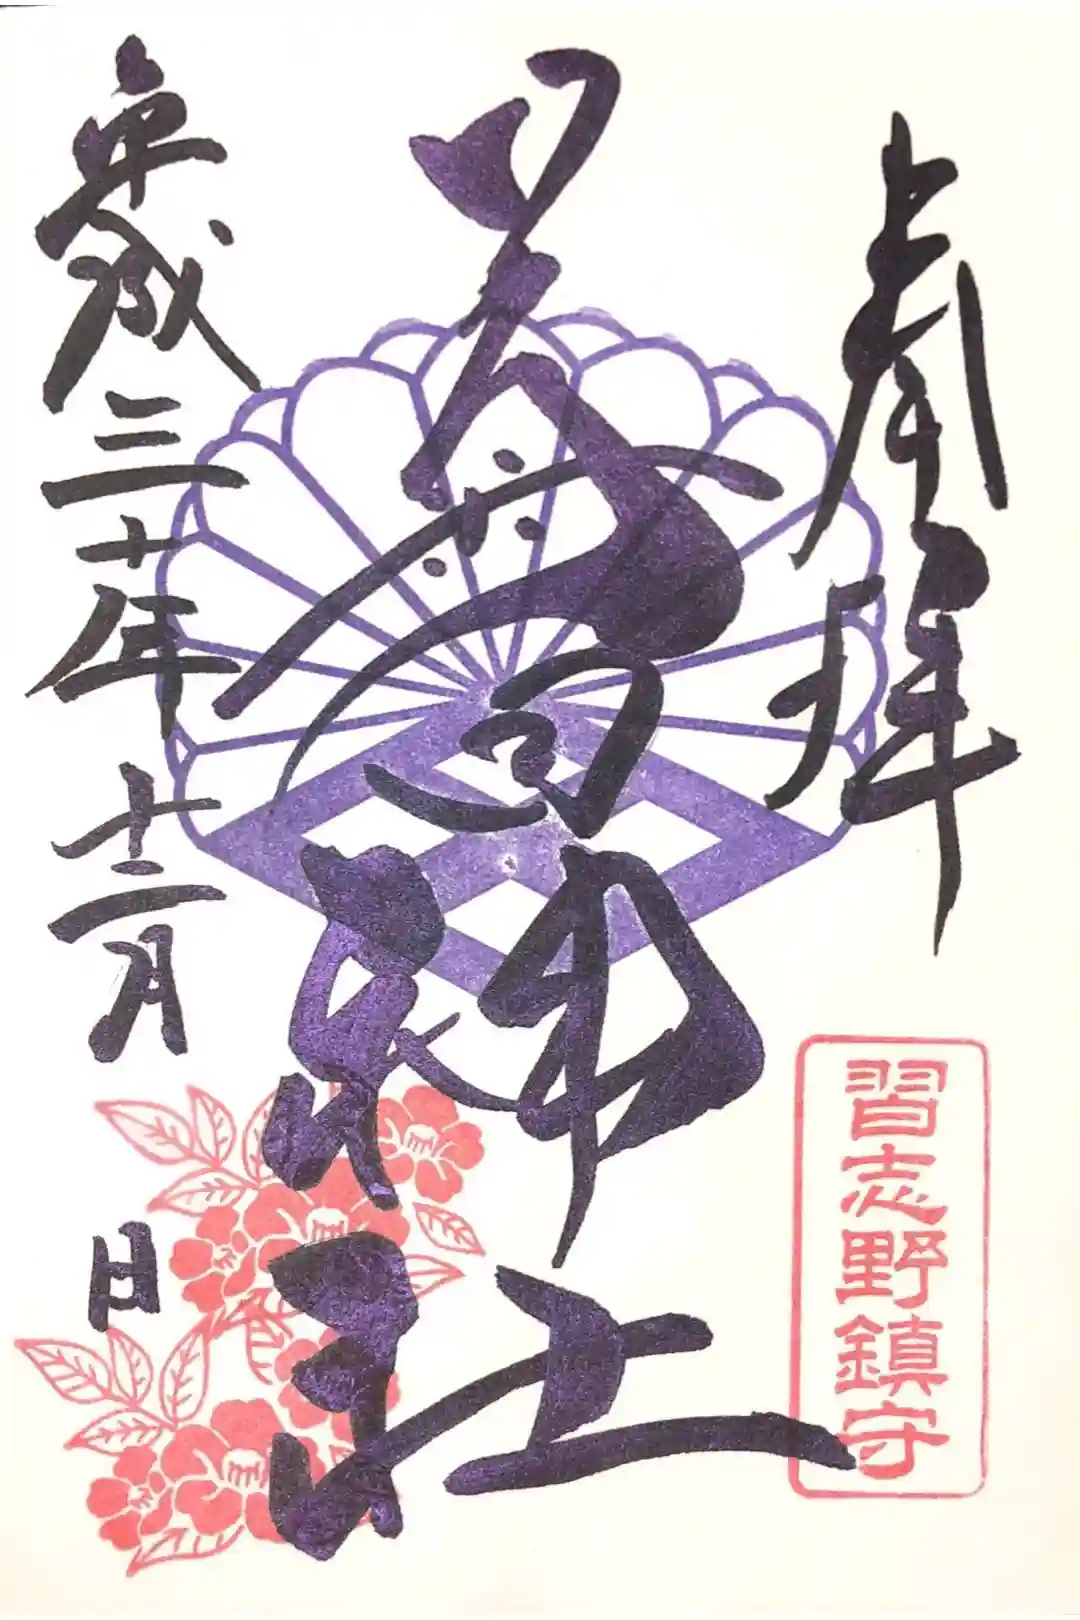 奉拝
習志野鎮守
菊田神社
平成三十年十二月 日